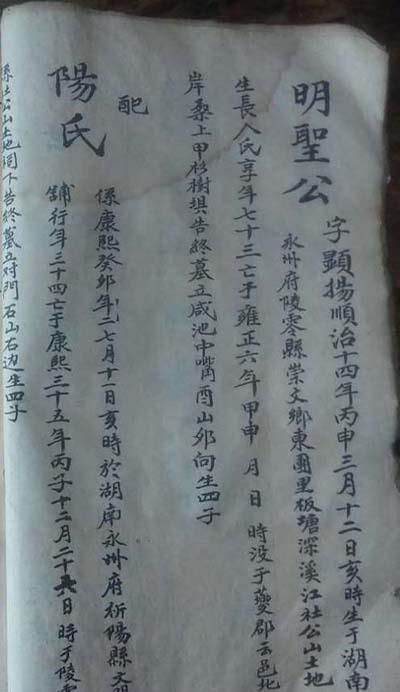 明聖公
字顯揚順治十四年丙申三月十二日亥時生于湖南
永州府陵零縣崇文鄉東團里板塘深溪江社公山土地
生長人氏享年七十三亡于雍正六年甲申 月 日 時没于夔郡云邑北
岸桑上甲杉樹埧告終墓立咸池中嘴酉山夘向生四子
配
陽氏
係康熙癸卯年二七月十一日亥時於湖南永州府祈陽縣文明
舖行年三十四亡于康熙三十五年丙子十二月二十日 時于陵零
縣社公山土地祠下告終墓立对門石山右边生四子